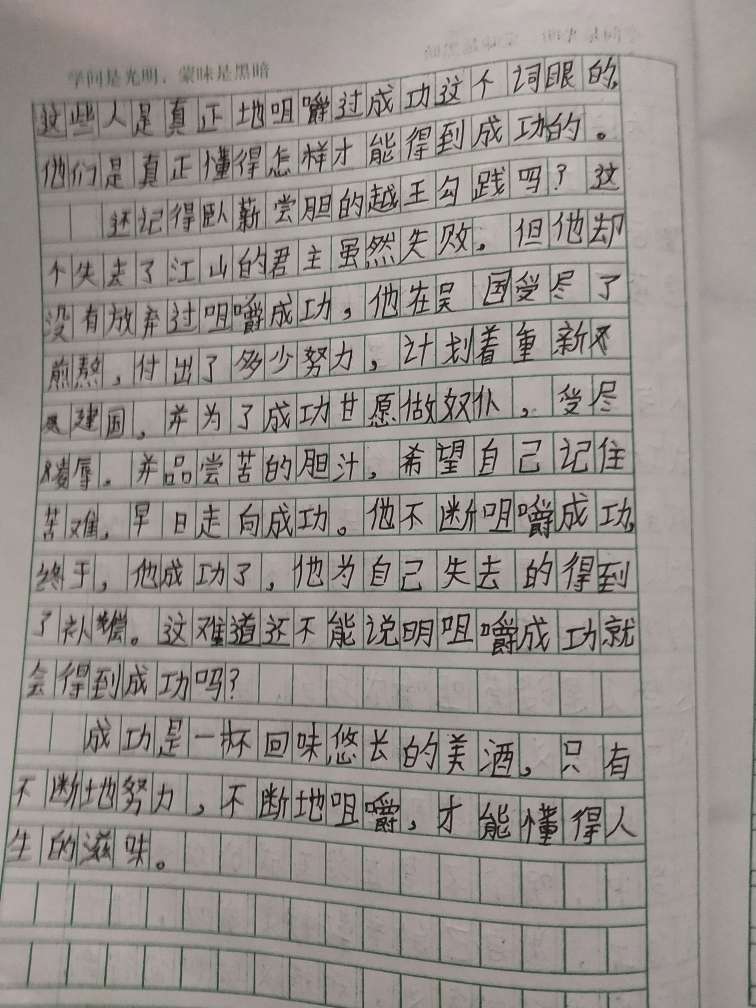 学问是光明，蒙昧是黑暗
这些人是真正地咀嚼过成功这个词眼的，
他们是真正懂得怎样才能得到成功的。
还记得卧薪尝胆的越王勾践吗？这
个失去了江山的君主虽然失败，但他却
没有放弃过咀嚼成功，他在吴国受尽了
煎熬，付出了多少努力，计划着重新
建国，并为了成功甘愿做奴仆，受尽
凌辱，并品尝苦的胆汁，希望自己记住
苦难，早日走向成功。他不断咀嚼成功，
终于，他成功了，他为自己失去的得到
了补偿。这难道还不能说明咀嚼成功就
会得到成功吗？
成功是一杯回味悠长的美酒，只有
不断地努力，不断地咀嚼，才能懂得人
生的滋味。